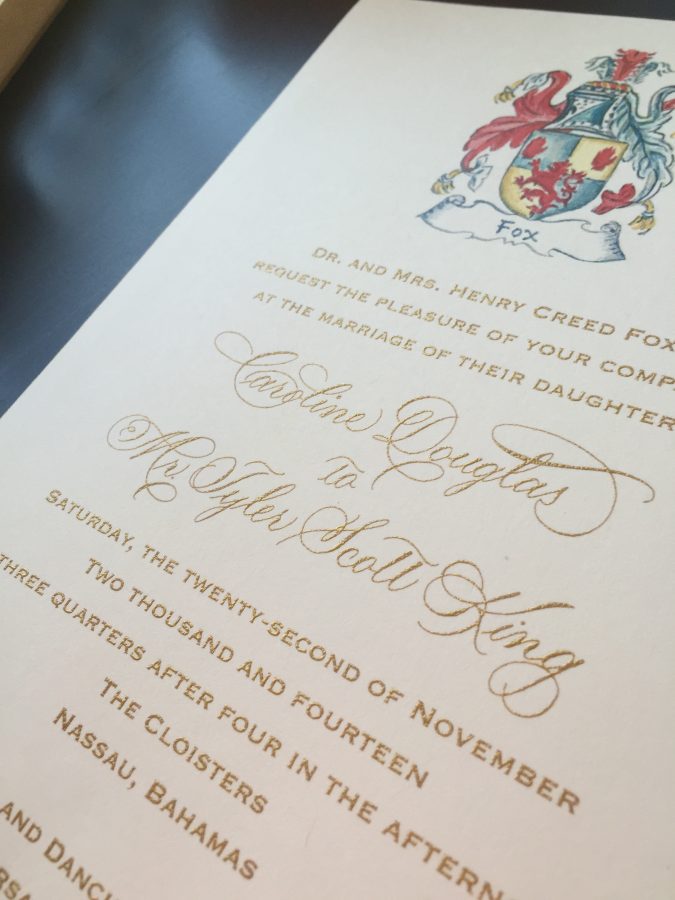 Fox
Dr. and Mrs. Henry Creed Fox
request the pleasure of your
at the marriage of their daughter
Caroline Douglas
To
Mr. Tyler Scott King
Saturday, the twenty-second of November
two thousand and fourteen
three quarters after four in the
The Cloisters
Nassau, Bahamas
and